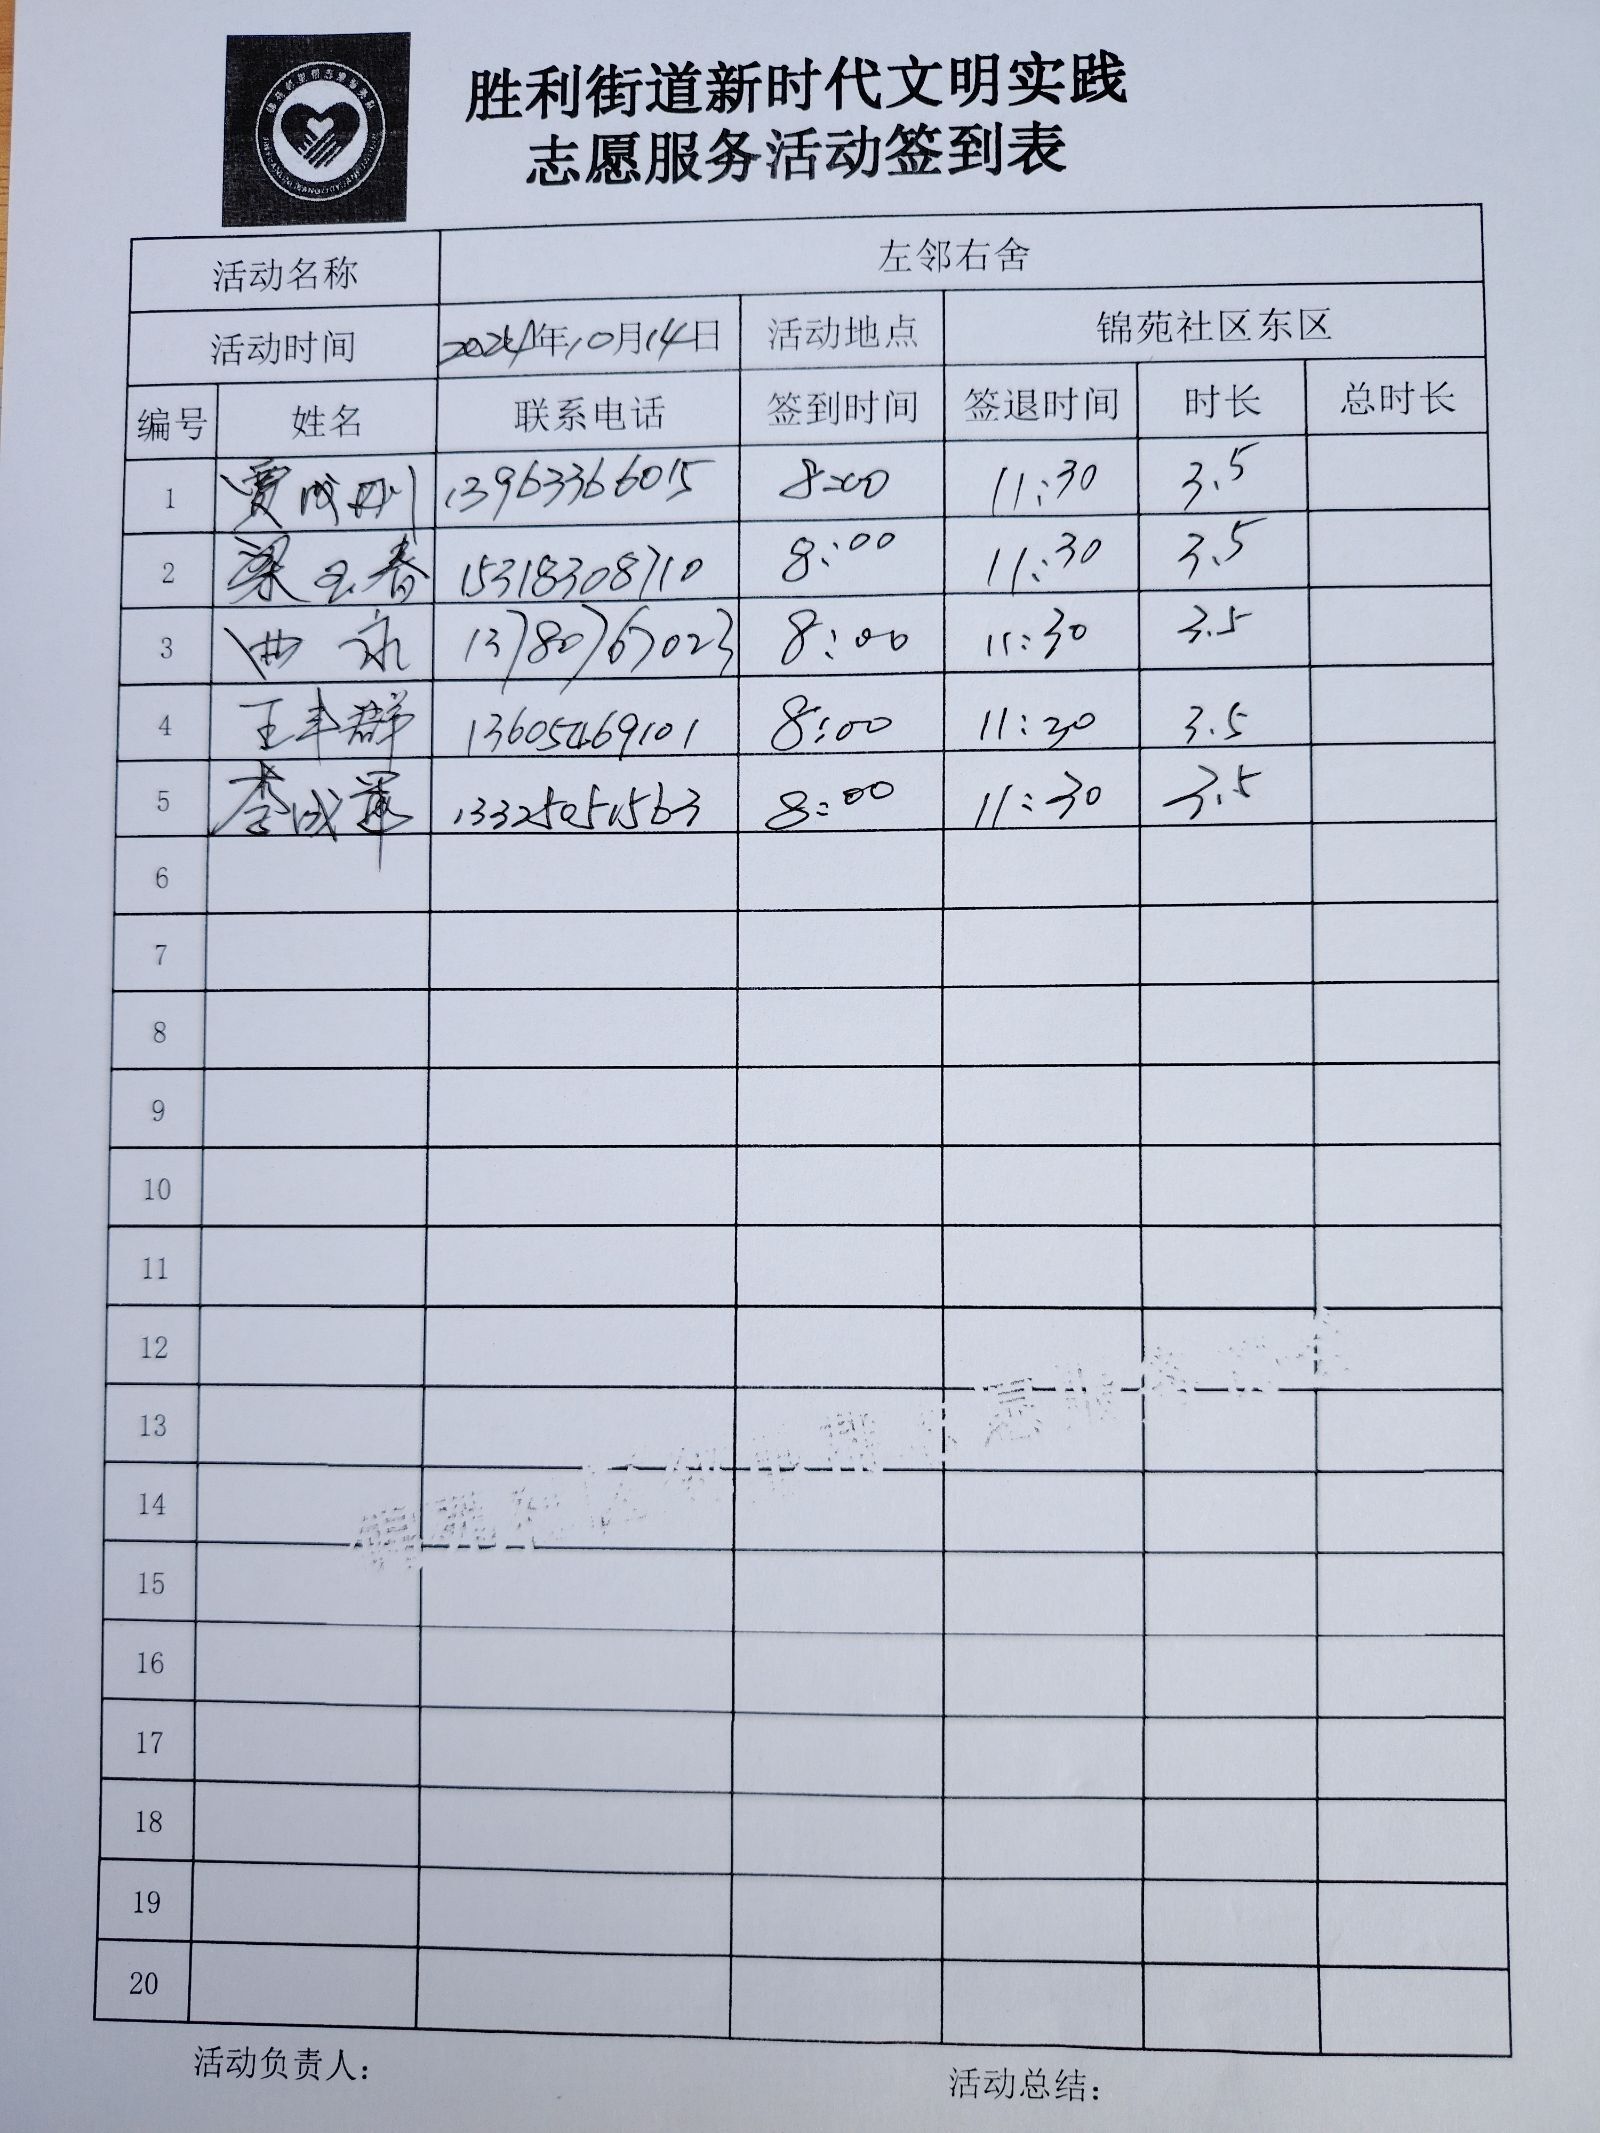 胜利街道新时代文明实践
志愿服务活动签到表
活动名称 左邻右舍
活动时间 2024年10月14日 活动地点 锦苑社区东区
编号 姓名 联系电话 签到时间 签退时间 时长 总时长
1 贾 13963366015 8:00 11:30 3.5
2 梁玉春 15318308710 8:00 11:30 3.5
3 曲永 13780767023 8:00 11:30 3.5
4 王丰群 13605469101 8:00 11:30 3.5
5 李成军 13325051563 8:00 11:30 3.5
6
7
8
9
10
11
12
13
14
15
16
17
18
19
20
活动负责人： 活动总结：